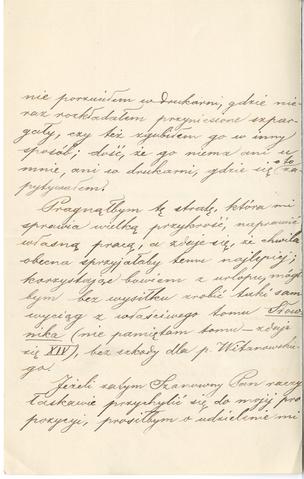 nie porzuciłem w drukarni, gdzie nie
raz rozkładałem przyniesione szpar-
gały, czy też zgubiłem go w inny
sposób; dość, że go niema ani u
mnie, ani w drukarni, gdzie się o to za-
pytywałem.
Pragnąłbym tę stratę, która mi
sprawia wielką przykrość, naprawić
własną pracą, a zdaje się, że chwila
obecna sprzyjałaby temu najlepiej;
korzystając bowiem z urlopu, mógł-
bym bez wysiłku zrobić taki sam
wyciąg z właściwego tomu Słow-
nika (nie pamiętam tomu – zdaje
się XIV), bez szkody dla p. Witanowskie-
go.
Jeżeli zatym Szanowny Pan raczy
łaskawie przychylić się do mojej pro
pozycyi, prosiłbym o udzielenie mi